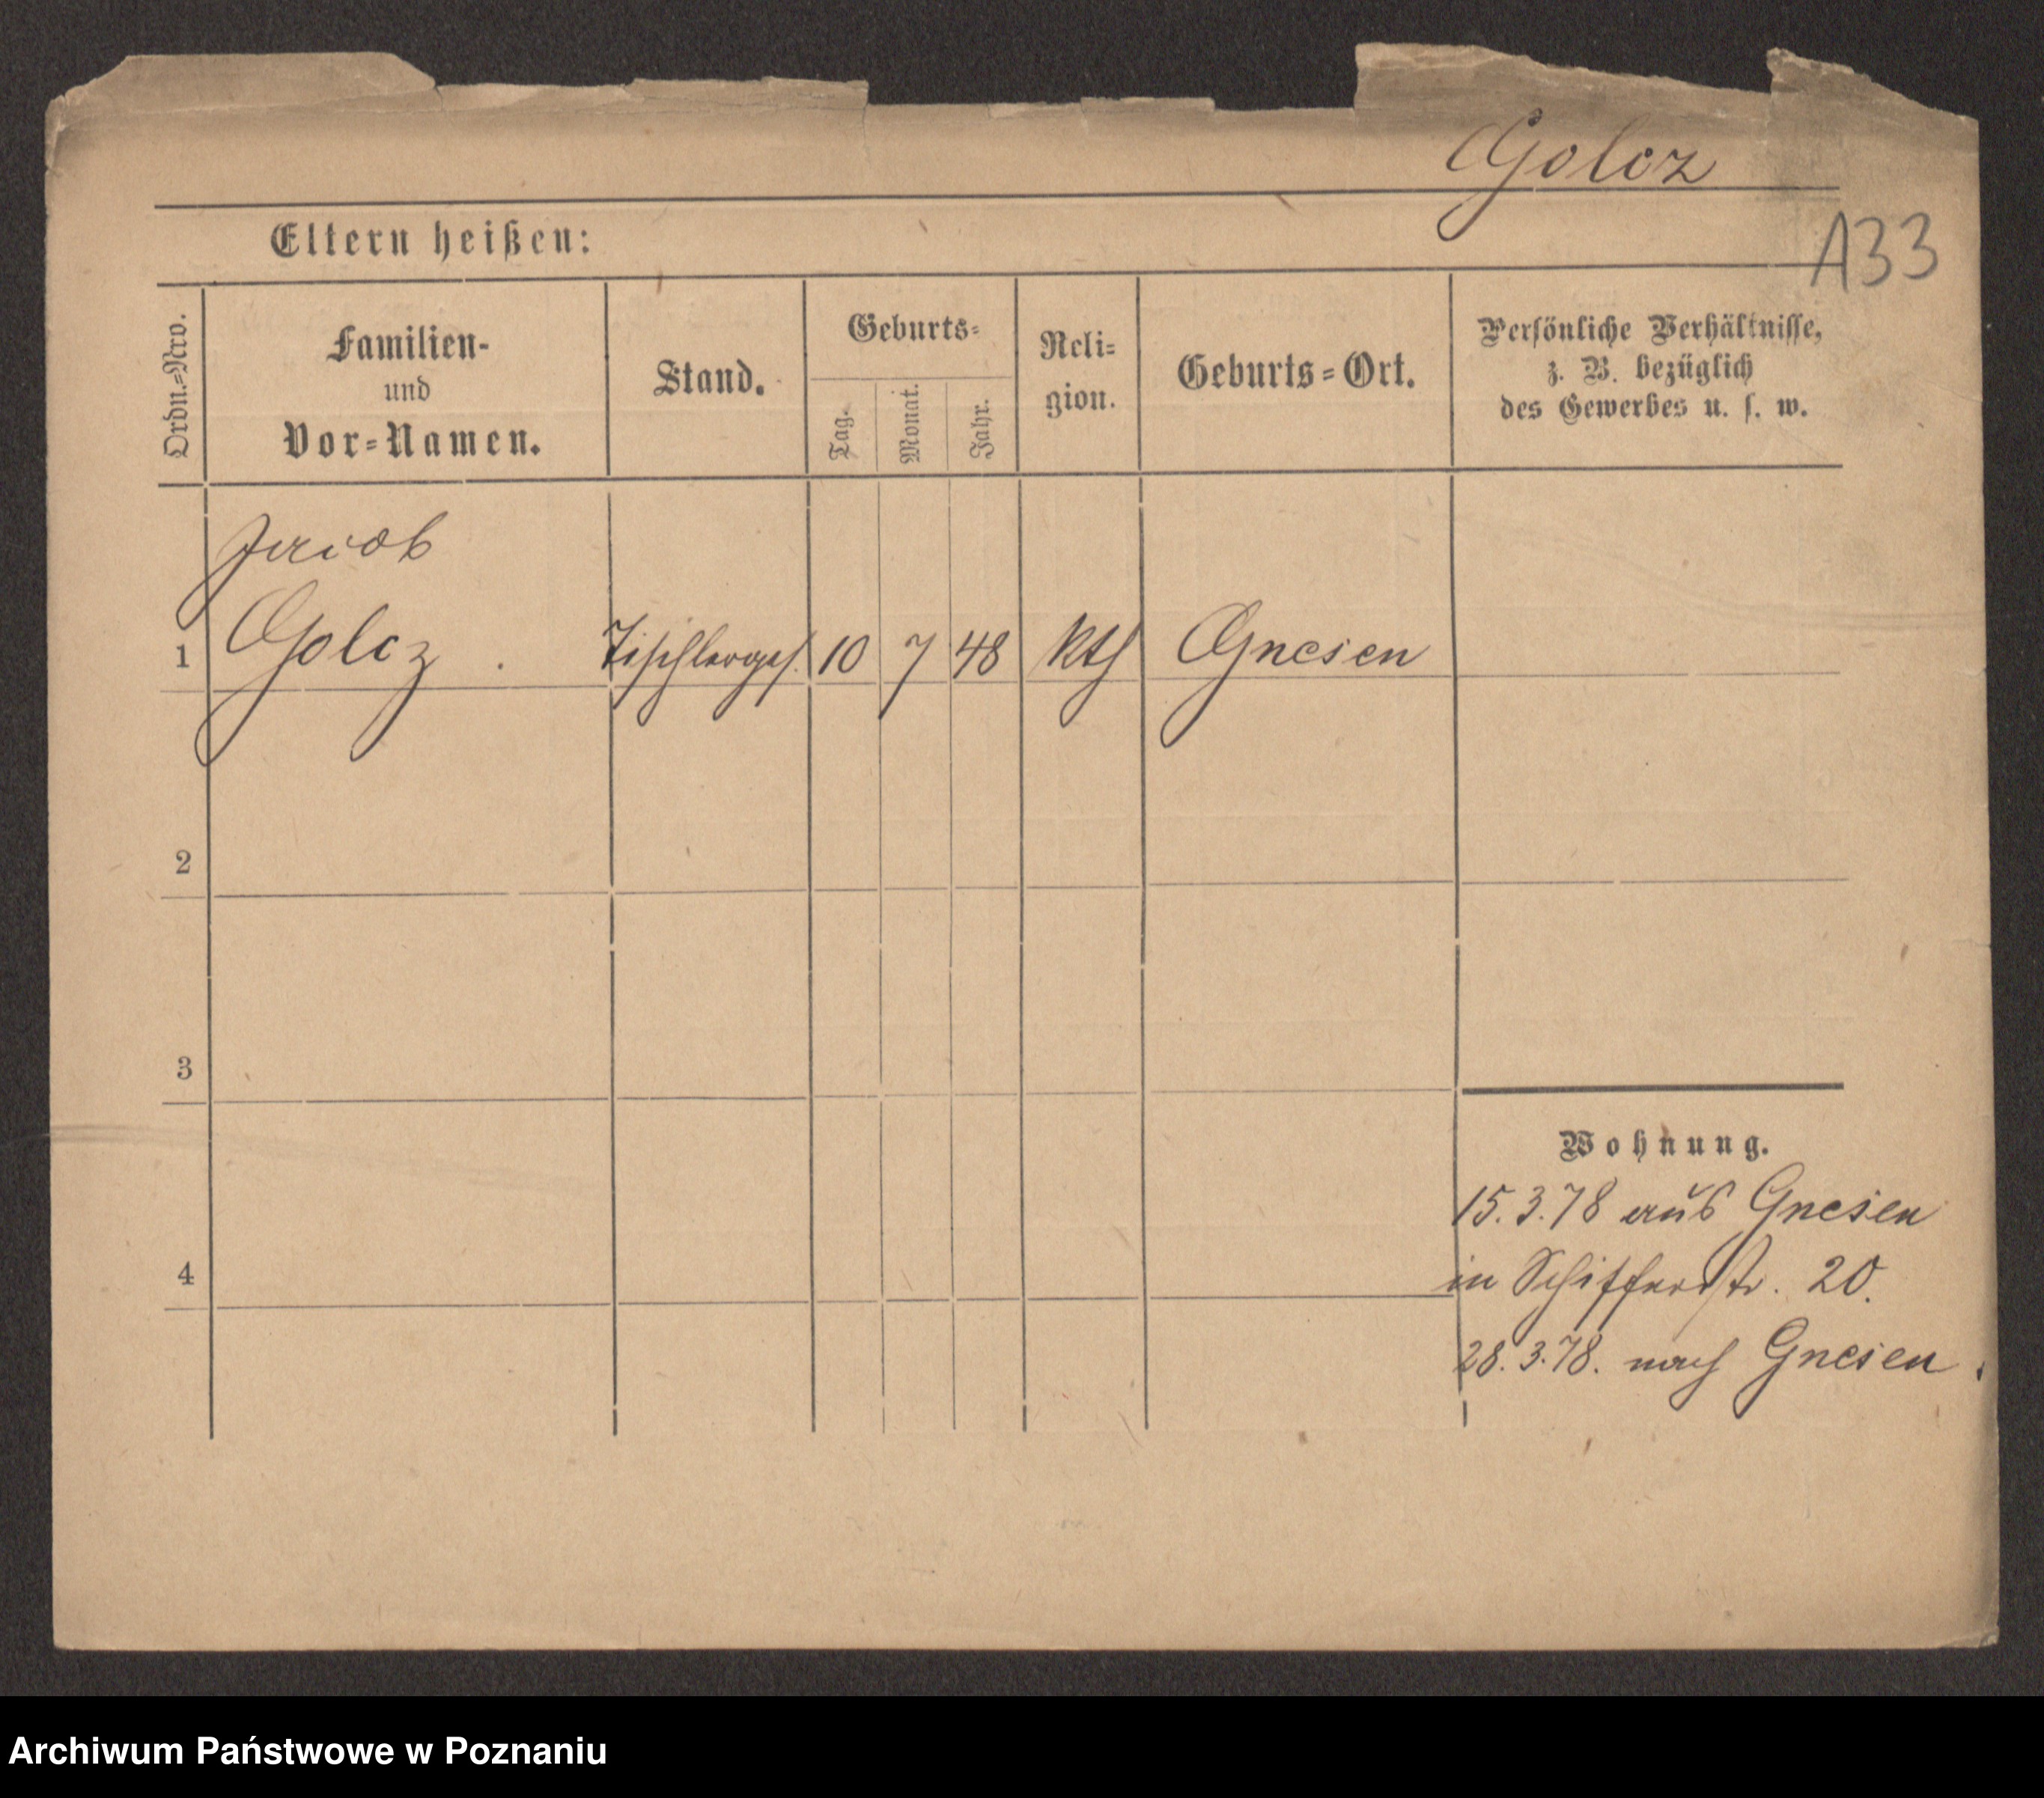 Golcz
A33
Eltern heißen:
Ordn.=Nro.
Familien-
und
Vor=Namen.
Stand.
Geburts=
Tag.
Monat.
Jahr.
Reli=
gion.
Geburts=Ort.
Persönliche Verhältnisse,
z. B. bezüglich
des Gewerbes u. s. w.
Jacob
1 Golcz . Tischlerges. 10 7 48 kth Gnesen
2
3
Wohnung.
15.3.78 aus Gnesen
4
in Schifferstr. 20.
28.3.78. nach Gnesen.
Archiwum Państwowe w Poznaniu